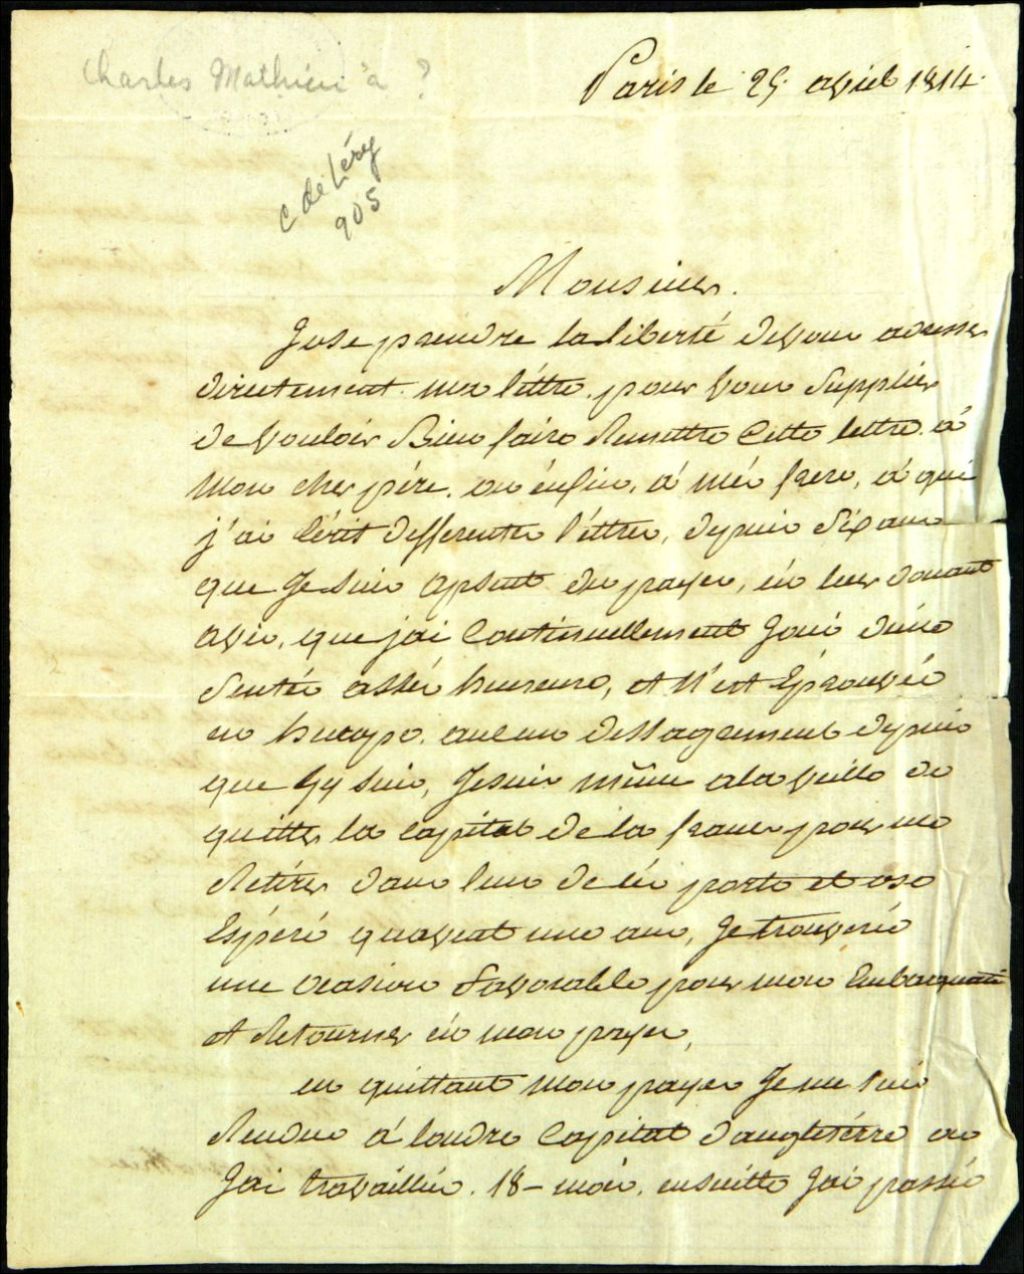 Charles Mathieu à ?
Paris le 25 avril 1814
C de Léry
905
Monsieur.
Jose prendre la liberté de vour adresser
directement ma léttre, pour vour Supplier
de vouloir Bien faire Remettre Cette lettre à
mon cher pére, ou énfin, á més frere, á qui
j'ai Écrit differente léttre, depuis dix ans
que Je suis apsent du payer, én leur donant
avis, que jai Continuellement Joui dúne
Sentér assér hureuse, et n'est Éprouvér
en hurope, aucun dessagrement depuis
que jy suis, Je suis même ala veille de
quitter la Capital de la france pour me
Retirer dans lun de cés ports et ose
Espéré quavant une ans, Je trouveré
une ocasion favorable pour mon Embarquement
et Retourner én mon payer,
en quittant mon payer Je me suis
Rendue á londre Capital dangleterre ou
Jai travaillér. 18 - mois, ensuitte Jai passér